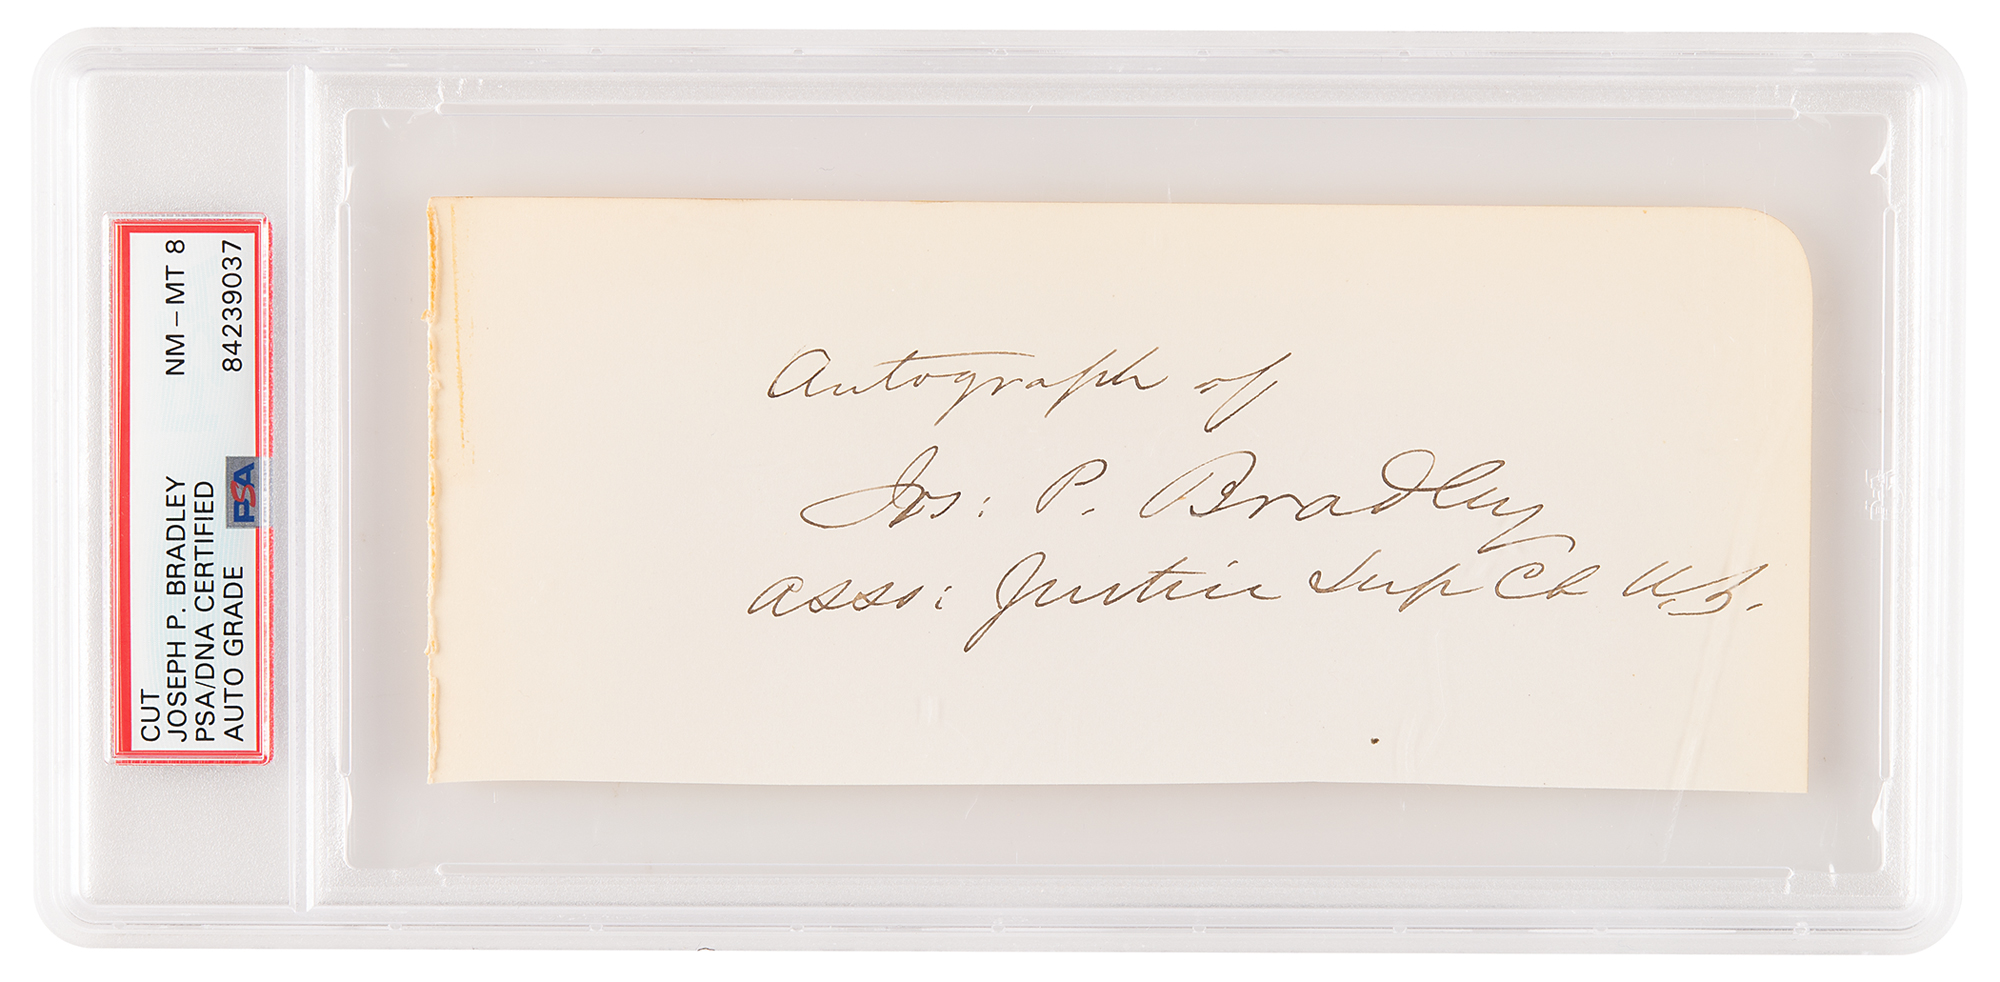 CUT
JOSEPH P. BRADLEY NM – MT 8
PSA/DNA CERTIFIED
AUTO GRADE 84239037
PSA
Autograph of
Jos: P. Bradley
Asso: Justice Sup Ct U.S.